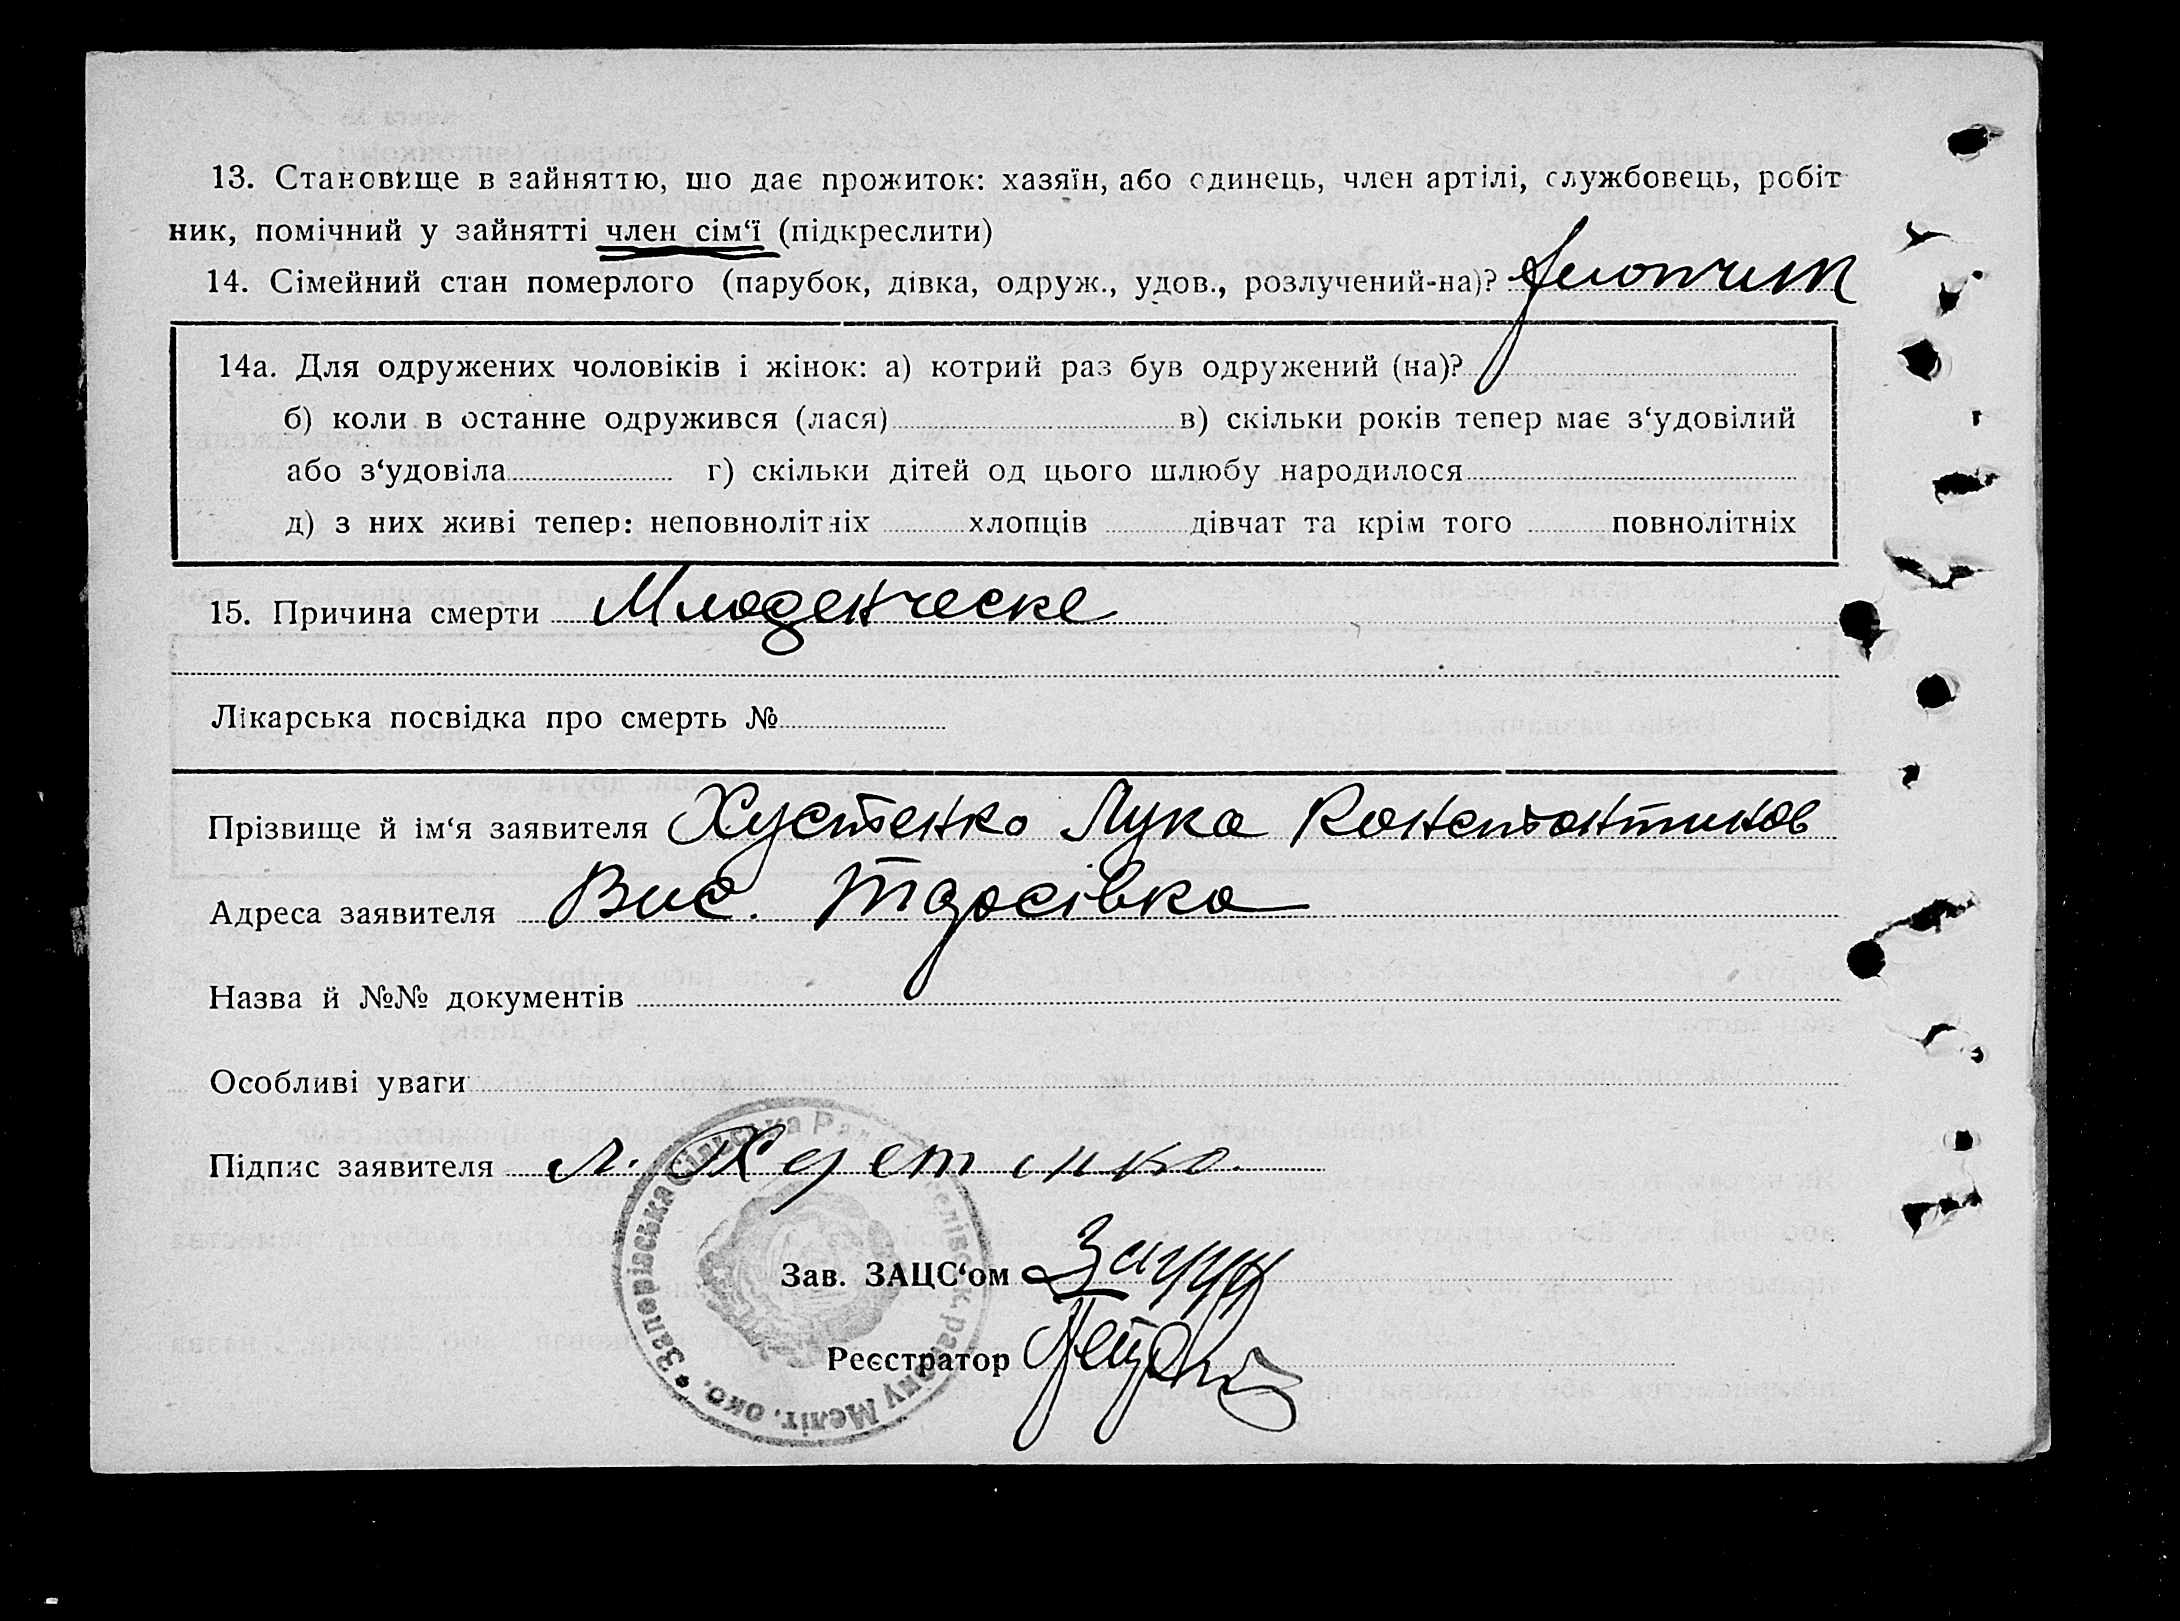 13. Становище в зайняттю, що дає прожиток: хазяїн, або одинець, член артілі, службовець, робіт
ник, помічний у зайнятті член сім‘ї (підкреслити)
14. Сімейний стан померлого (парубок, дівка, одруж., удов., розлучений-на)? хлопчик
14а. Для одружених чоловіків і жінок: а) котрий раз був одружений (на)?
б) коли в останне одружився (лася) в) скільки років тепер має з‘удовілий
або з‘удовіла г) скільки дітей од цього шлюбу народилося
д) з них живі тепер: неповнолітніх хлопців дівчат та крім того повнолітніх
15. Причина смерти Младенческе
Лікарська посвідка про смерть №
Прізвище й ім‘я заявителя Хустенко Лука Константинов
Адреса заявителя Вис. Тарсівка
Назва й №№ документів
Особливі уваги
Підпис заявителя Л. Хустенко
Зав. ЗАЦС‘ом
Реєстратор
Сільська Рада Меліт. окр.